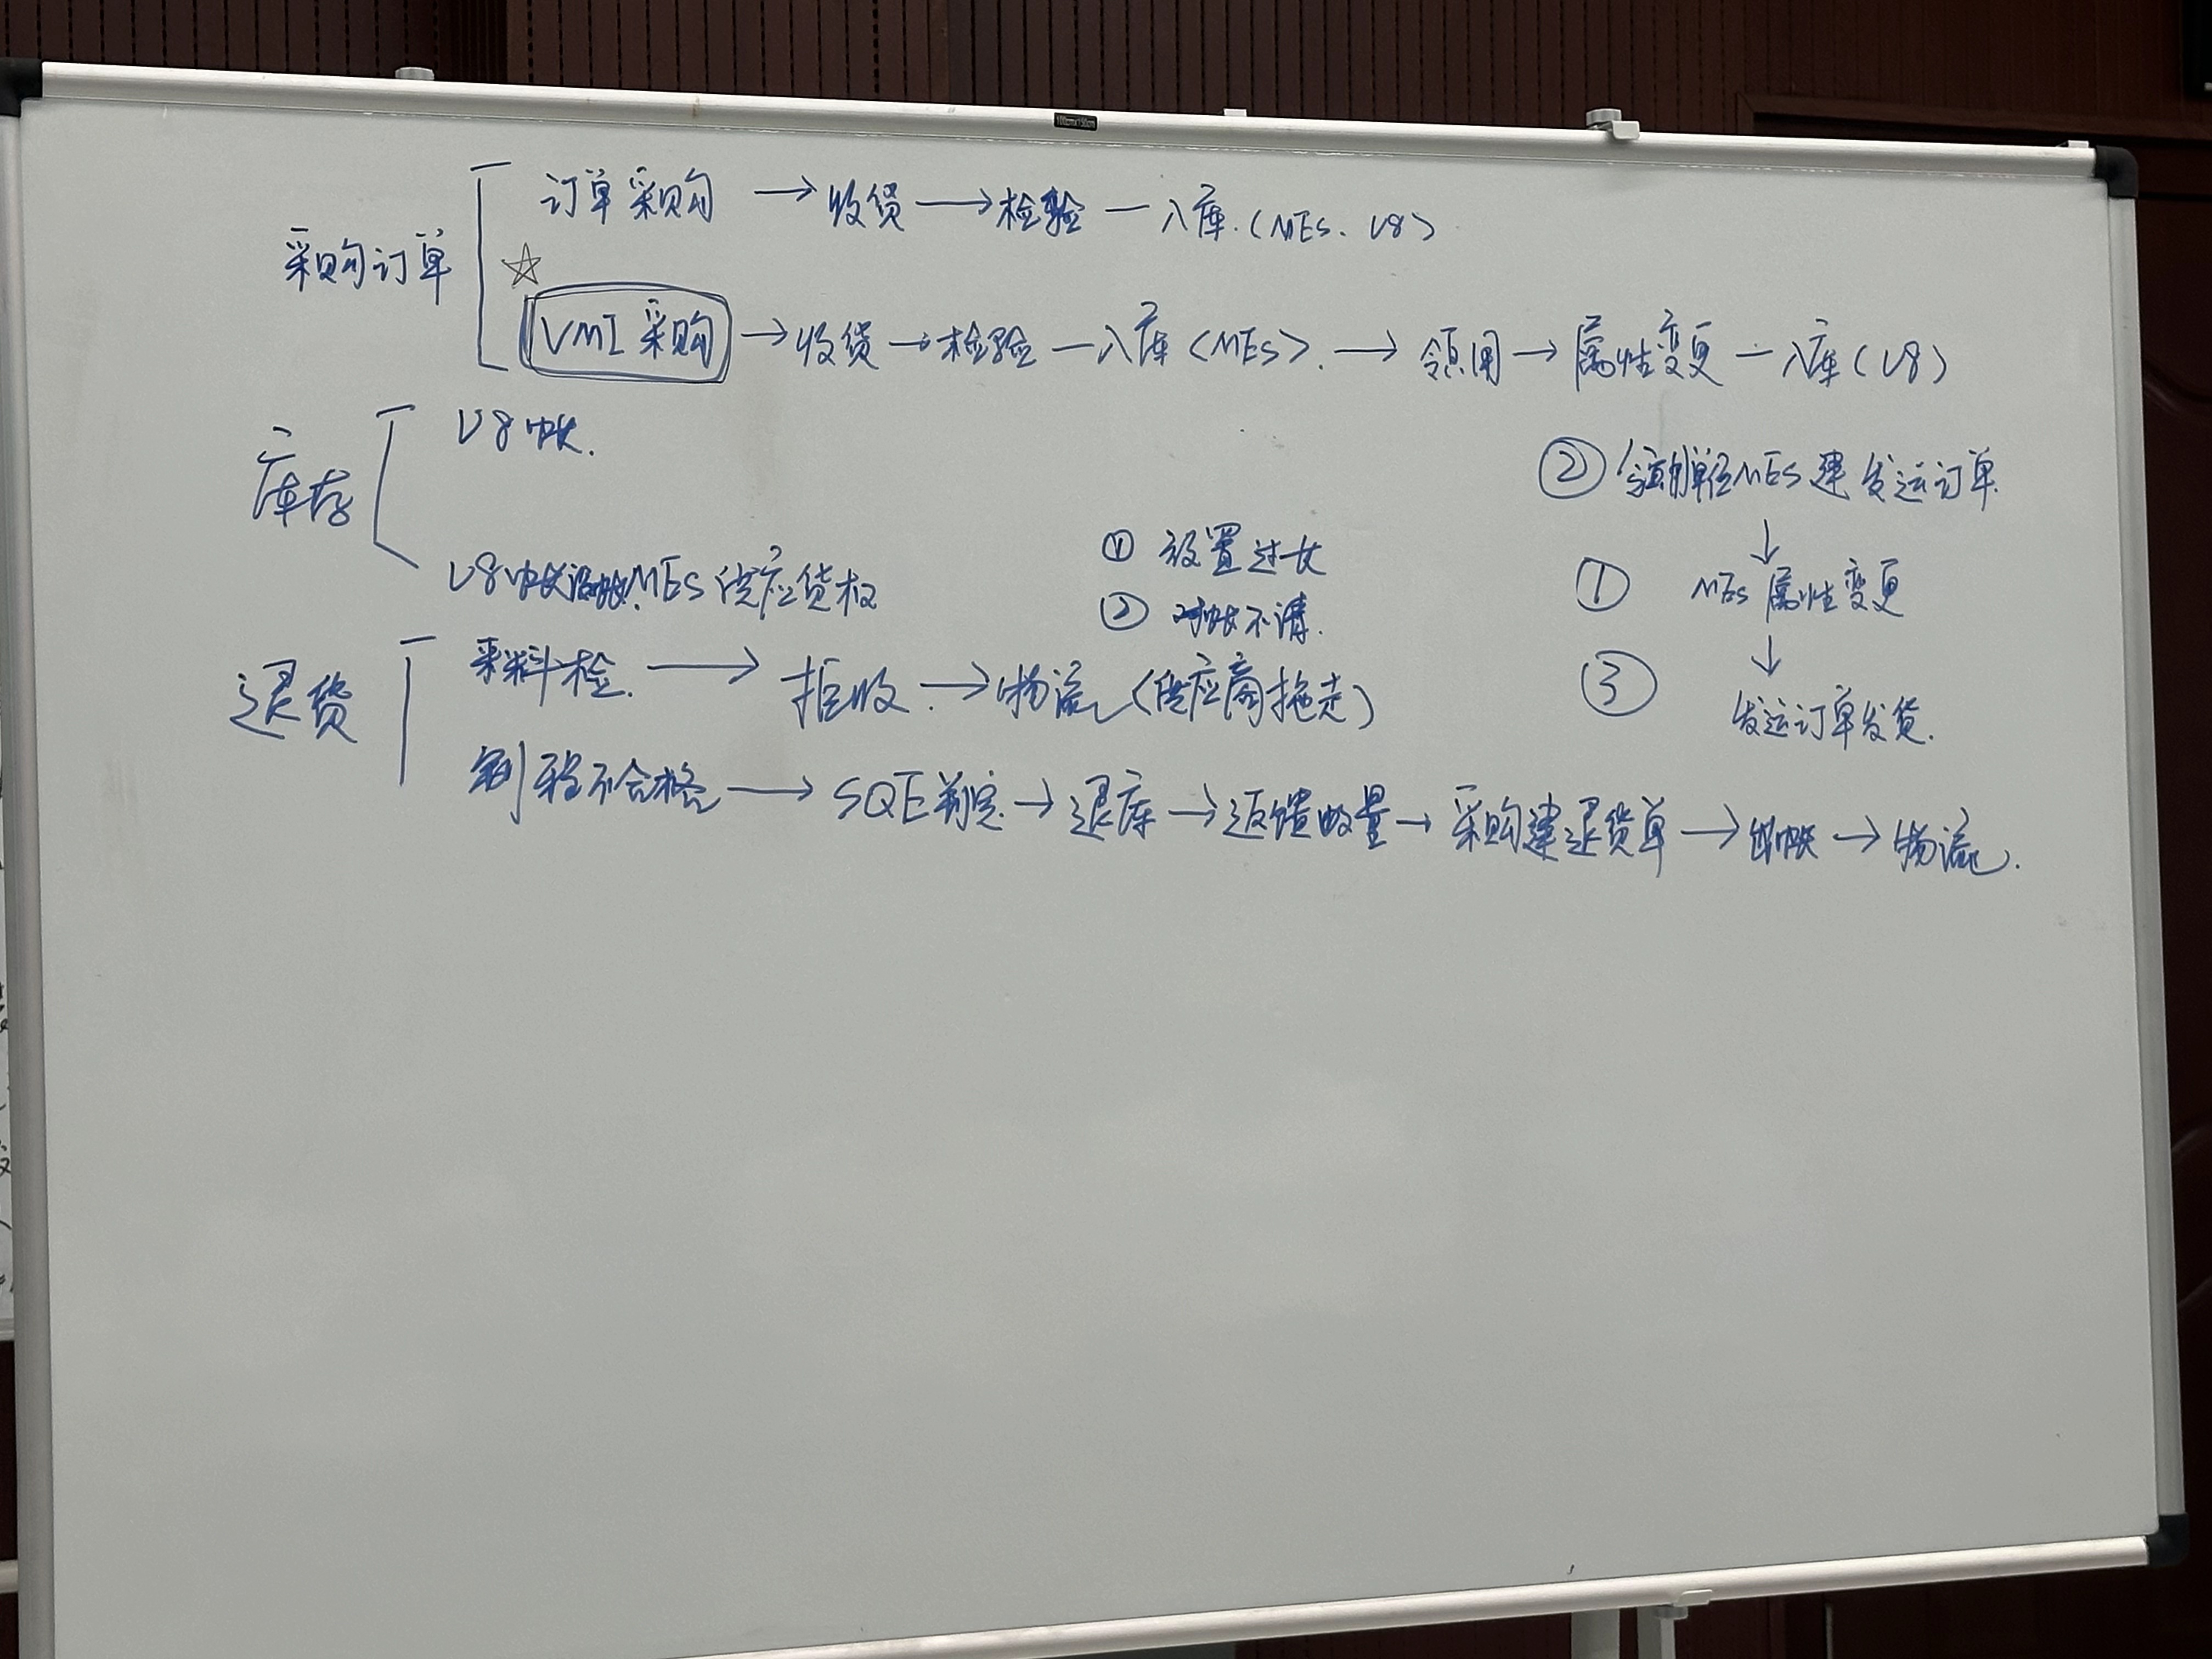 采购订单
订单采购 → 收货 → 检验 — 入库.（MES、U8）
☆
VMI 采购 → 收货 → 检验 — 入库〈MES〉. → 领用 → 属性变更 — 入库（U8）
库存
U8 帐.
U8 帐 MES 供应货权
① 设置过长
② 对帐不清.
② MES 建发运订单.
↓
① MES 属性变更
↓
③ 发运订单发货.
退货
来料检. → 拒收. → 物流（供应商拖走）
制程不合格 → SQE判定. → 退库 → 返馈数量 → 采购建退货单 → 帐 → 物流.